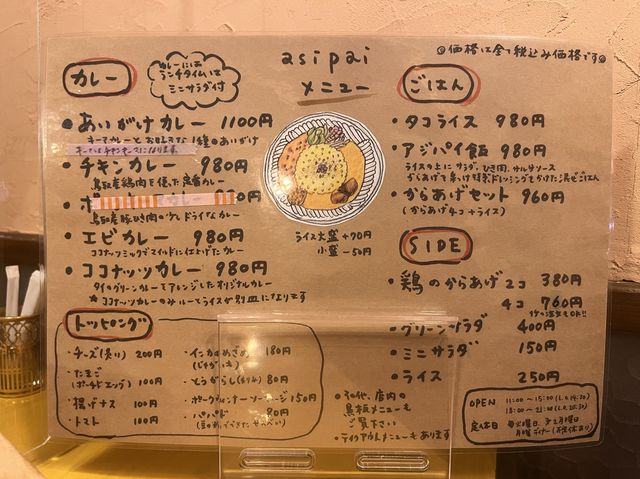 asipai
メニュー
◎価格は全て税込み価格です◎
カレー
カレーには
ランチタイムは
ミニサラダ付
・あいがけカレー 1100円
キーマカレーとお好きな1種のあいがけ
・チキンカレー 980円
鳥取産鶏肉を使った定番カレー
鳥取産豚ひき肉のドライなカレー
・エビカレー 980円
ココナッツミルクでマイルドに仕上げたカレー
・ココナッツカレー 980円
タイのグリーンカレーをアレンジしたオリジナルカレー
★ココナッツカレーのみルーとライスが別皿になります
ライス大盛 +70円
小盛 -50円
トッピング
・チーズ(炙り) 200円
・たまご
(ポーチドエッグ) 100円
・揚げナス 100円
・トマト 100円
・インカのめざめ 180円
(じゃがいも)
・とうがらし 80円
・ポークウインナーソーセージ 150円
・パパド 90円
ごはん
・タコライス 980円
・アジパイ飯 980円
ライスの上にサラダ、ひき肉、サルサソース
からあげを乗っけ特製ドレッシングをかけた混ぜごはん
・からあげセット 960円
(からあげ4コ+ライス)
SIDE
・鶏のからあげ 2コ 380円
4コ 760円
・グリーンサラダ 400円
・ミニサラダ 150円
・ライス 250円
◎その他、店内の
黒板メニューも
ご覧下さい
・テイクアウトメニューもあります
OPEN 11:00~15:00 (L.O 14:30)
18:00~21:30
定休日 毎火曜日
月曜ディナー(不定休あり)